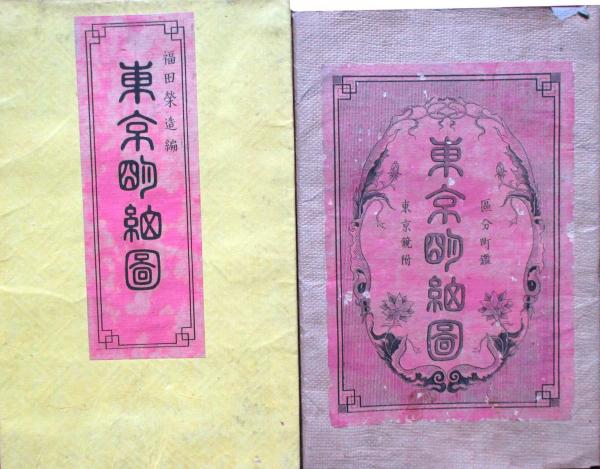 福田榮造編
東京明細圖
區分町鑑
東京明細圖
東京鏡附